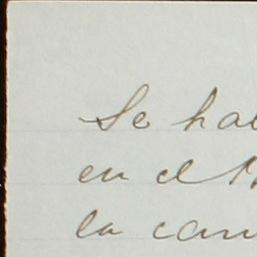 Se hal
en el
la cam